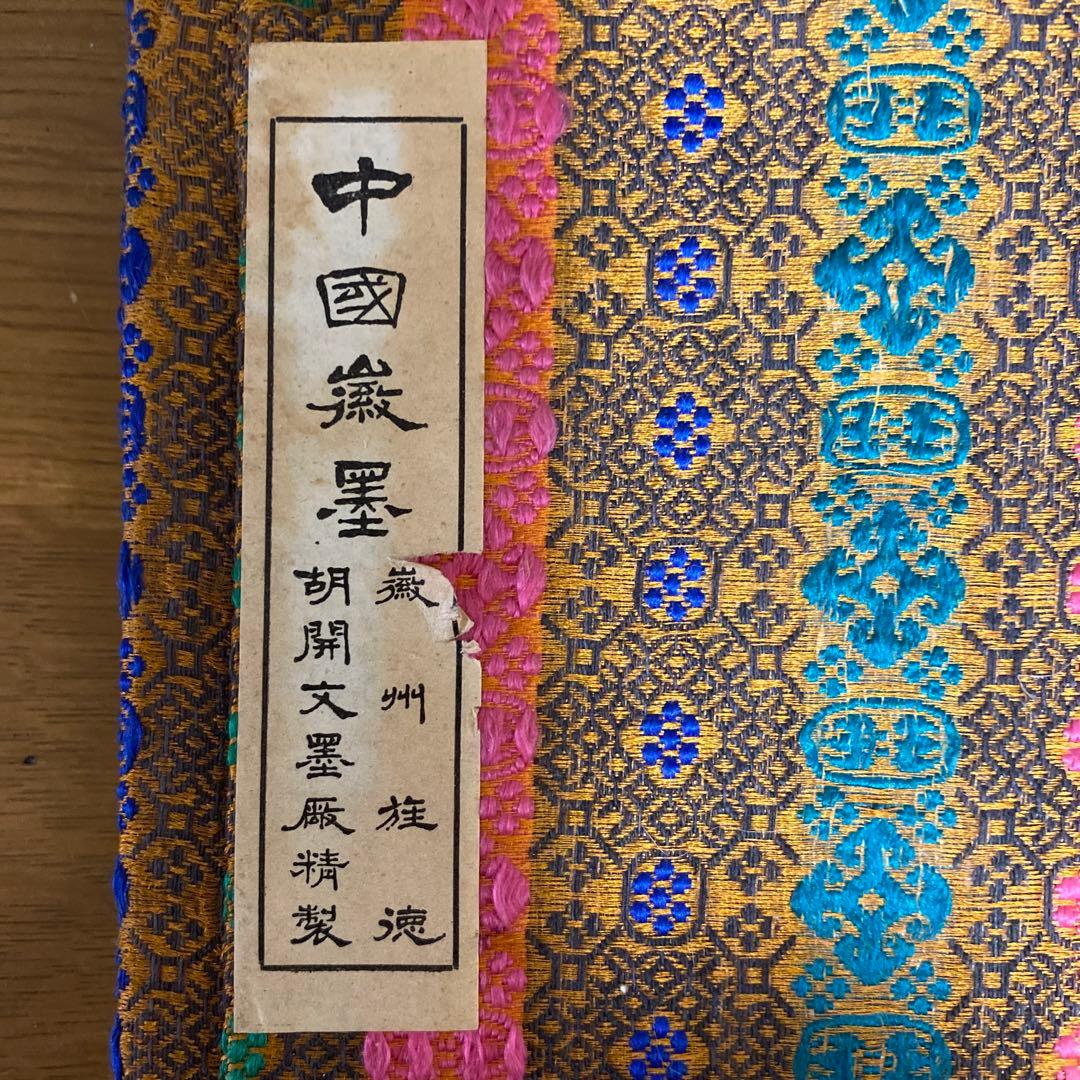 中國徽墨
徽州旌德
胡開文墨厰精製